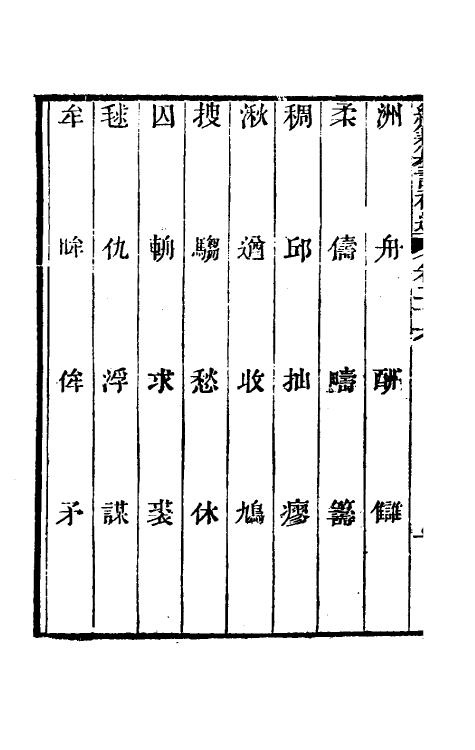 洲舟酬讎
柔儔疇籌
稠邱抽瘳
湫遒收鳩
搜騶愁休
囚輈求裘
毬仇浮謀
牟眸侔矛